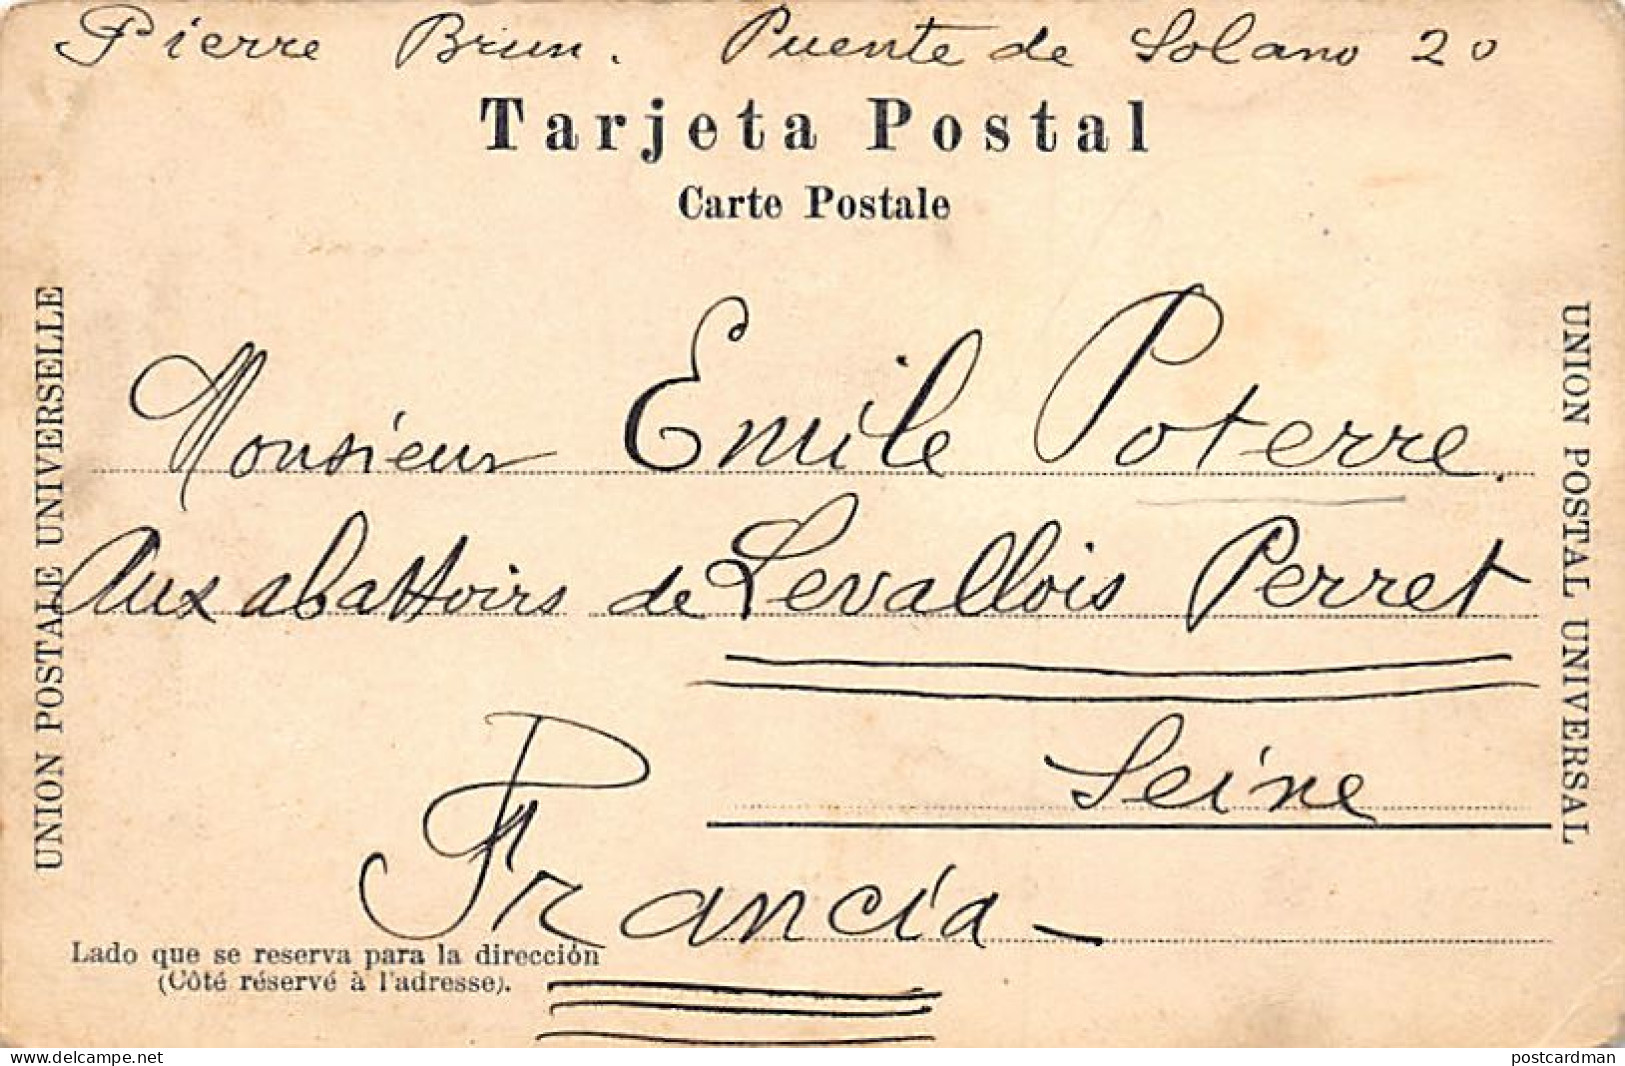 Pierre Brun. Puente de Solano 20
Tarjeta Postal
Carte Postale
UNION POSTALE UNIVERSELLE
UNION POSTAL UNIVERSAL
Monsieur Emile Poterre.
Aux abattoirs de Levallois Perret
Seine
Francia -
Lado que se reserva para la dirección
(Côté réservé à l'adresse).
www.delcampe.net
postcardman